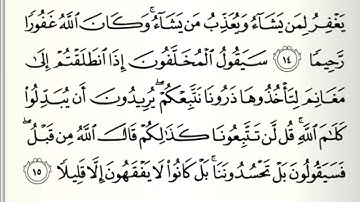 يَغْفِرُ لِمَن يَشَآءُ وَيُعَذِّبُ مَن يَشَآءُ ۚ وَكَانَ ٱللَّهُ غَفُورًا
رَّحِيمًا ١٤ سَيَقُولُ ٱلْمُخَلَّفُونَ إِذَا ٱنطَلَقْتُمْ إِلَىٰ
مَغَانِمَ لِتَأْخُذُوهَا ذَرُونَا نَتَّبِعْكُمْ ۖ يُرِيدُونَ أَن يُبَدِّلُوا۟
كَلَـٰمَ ٱللَّهِ ۚ قُل لَّن تَتَّبِعُونَا كَذَٰلِكُمْ قَالَ ٱللَّهُ مِن قَبْلُ ۖ
فَسَيَقُولُونَ بَلْ تَحْسُدُونَنَا ۚ بَلْ كَانُوا۟ لَا يَفْقَهُونَ إِلَّا قَلِيلًا ١٥